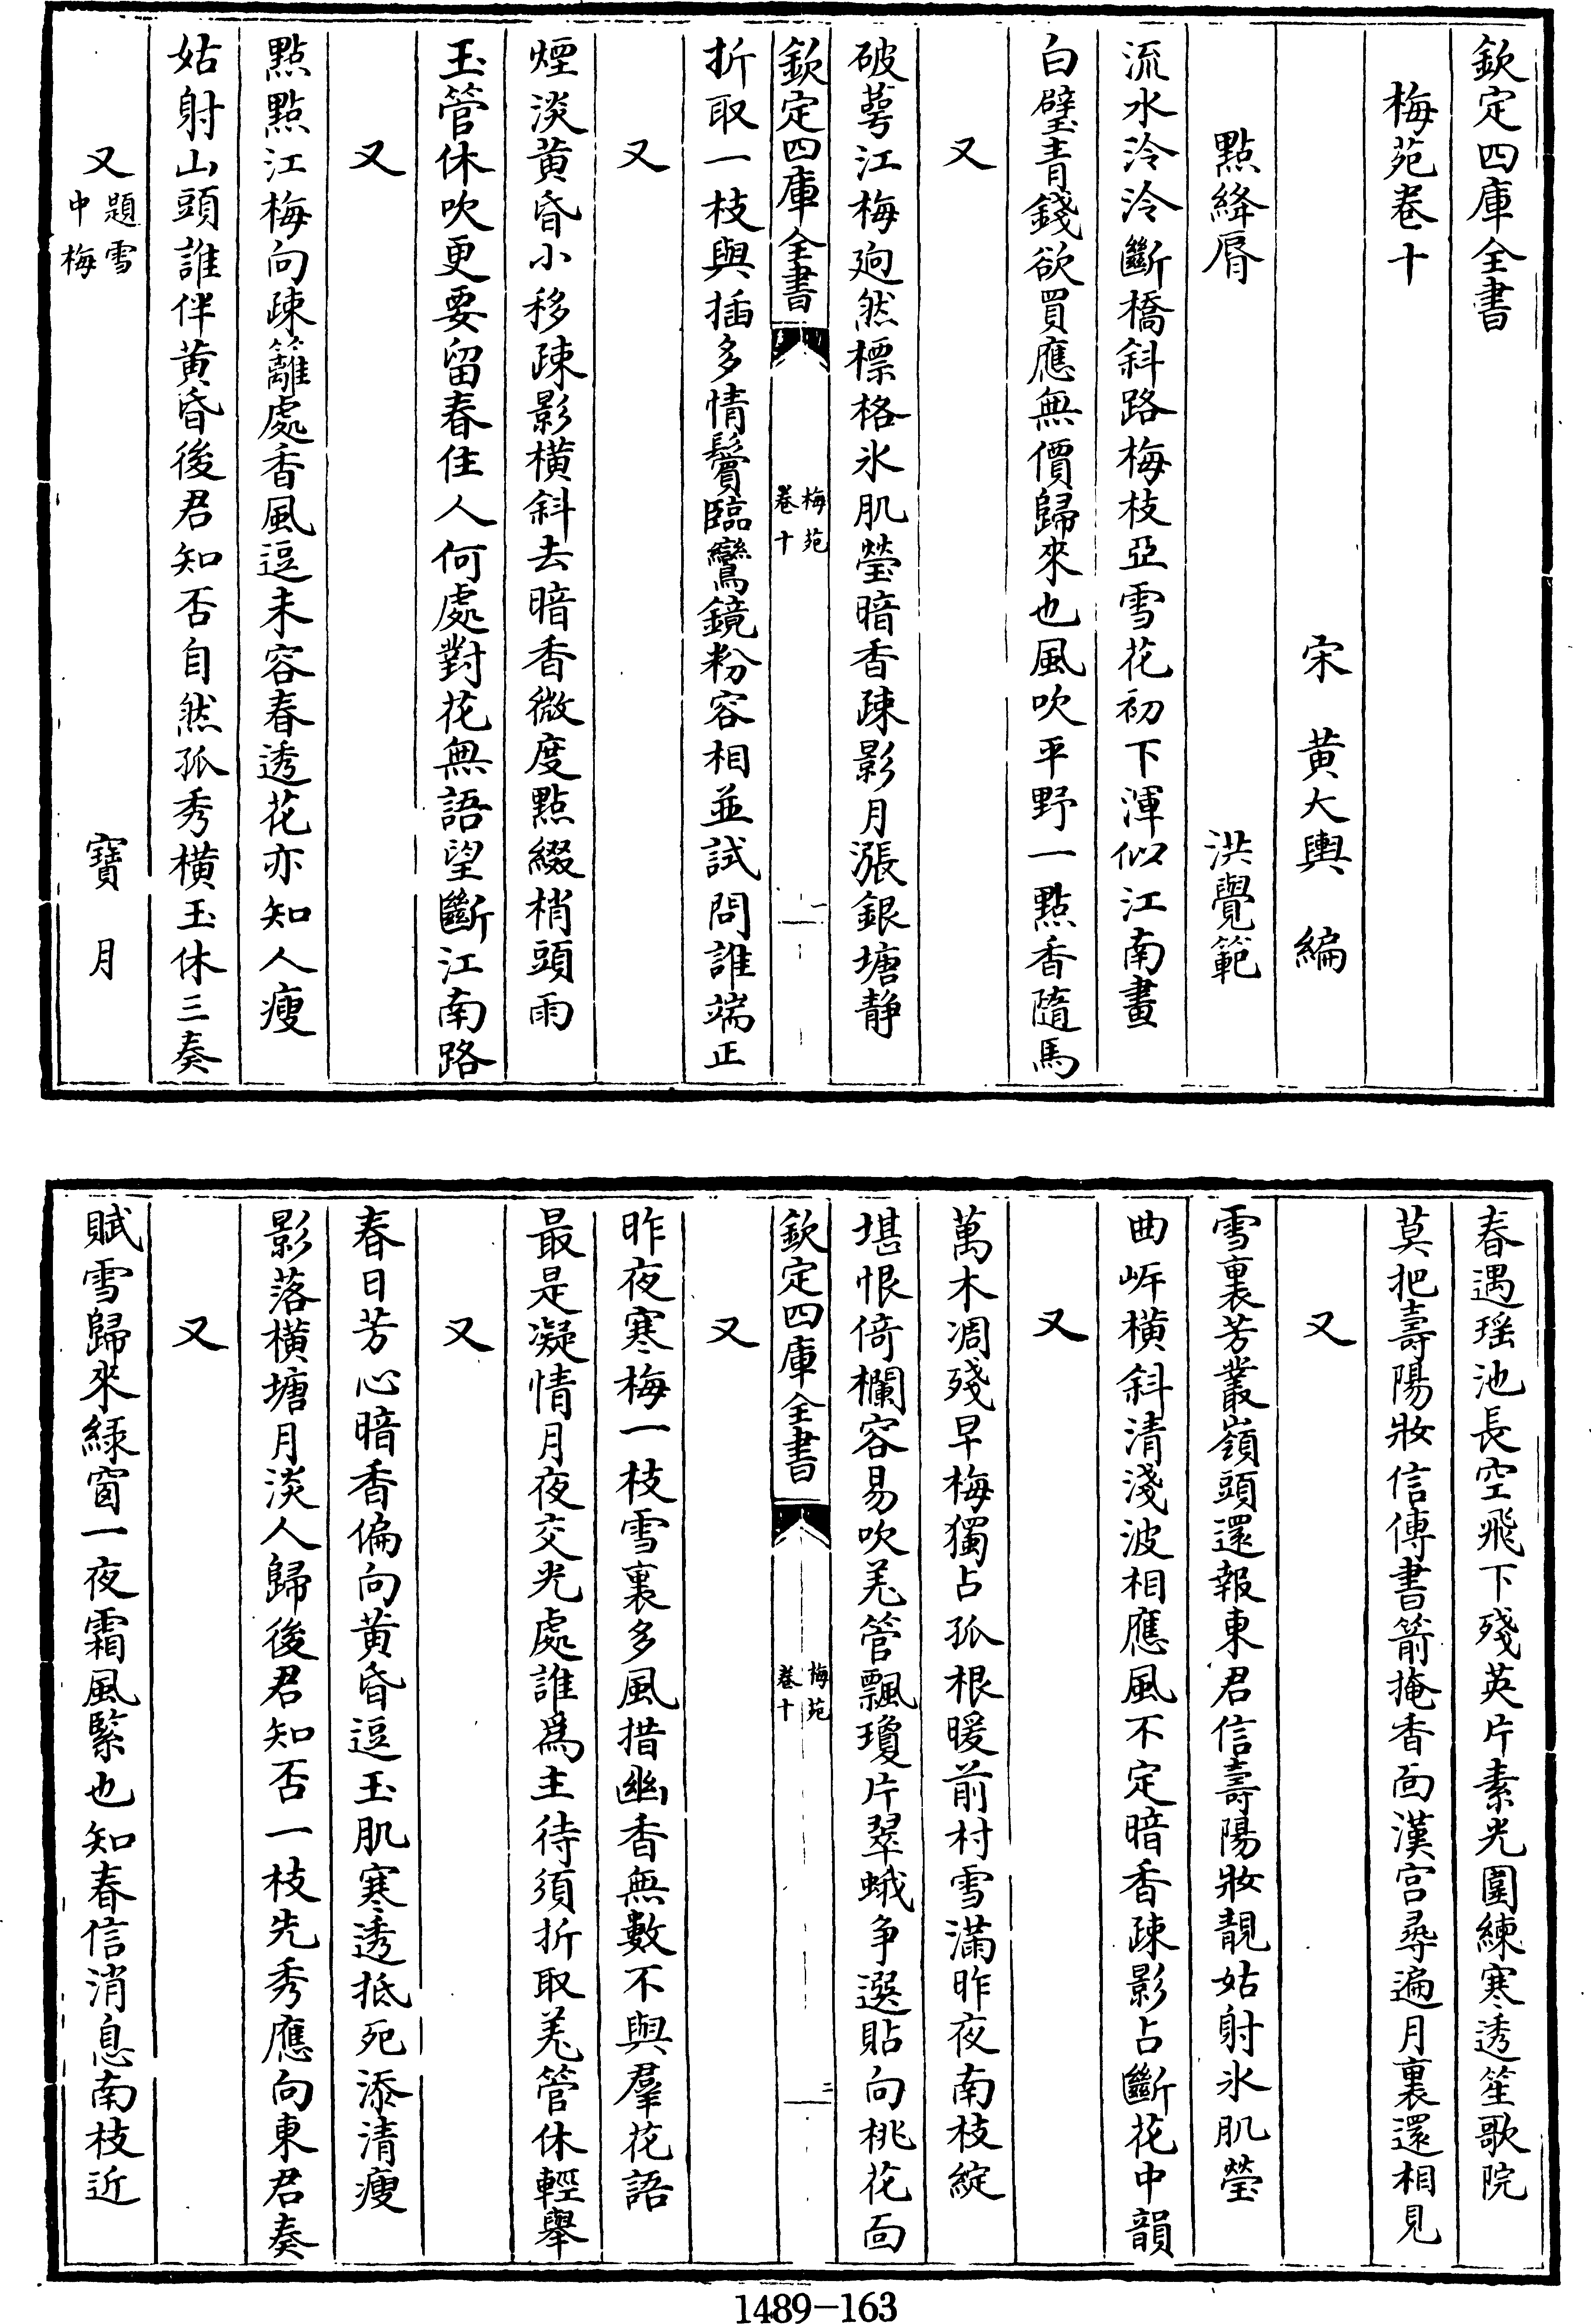 欽定四庫全書
梅苑卷十
宋　黄大輿　編
點絳脣　洪覺範
流水泠泠斷橋斜路梅枝亞雪花初下渾似江南畫
白璧青錢欲買應無價歸來也風吹平野一點香隨馬
又
破萼江梅廻然標格氷肌瑩暗香疎影月漲銀塘静
欽定四庫全書
梅苑
卷十
一
折取一枝與插多情鬢臨鸞鏡粉容相並試問誰端正
又
煙淡黄昏小移疎影橫斜去暗香微度點綴梢頭雨
玉管休吹更要留春住人何處對花無語望斷江南路
又
點點江梅向疎籬處香風逗未容春透花亦知人瘦
姑射山頭誰伴黄昏後君知否自然孤秀橫玉休三奏
又題雪中梅　寶月
春遇瑶池長空飛下殘英片素光圍練寒透笙歌院
莫把壽陽妝信傳書箭掩香面漢宫尋遍月裏還相見
又
雪裏芳叢嶺頭還報東君信壽陽妝靚姑射氷肌瑩
曲岍橫斜清淺波相應風不定暗香疎影占斷花中韻
又
萬木凋殘早梅獨占孤根暖前村雪滿昨夜南枝綻
堪恨倚欄容易吹羌管飄瓊片翠蛾争選貼向桃花面
欽定四庫全書
梅苑
卷十
二
又
昨夜寒梅一枝雪裏多風措幽香無數不與羣花語
最是凝情月夜交光處誰爲主待須折取羌管休輕舉
又
春日芳心暗香偏向黄昏逗玉肌寒透抵死添清瘦
影落橫塘月淡人歸後君知否一枝先秀應向東君奏
又
賦雪歸來緑窗一夜霜風緊也知春信消息南枝近
1489-163